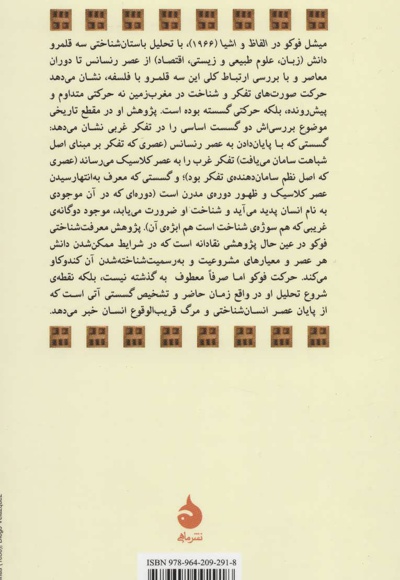 میشل فوکو در الفاظ و اشیا (۱۹۶۶)، با تحلیل باستان‌شناختی سه قلمرو
دانش (زبان، علوم طبیعی و زیستی، اقتصاد) از عصر رنسانس تا دوران
معاصر و با بررسی ارتباط کلی این سه قلمرو با فلسفه، نشان می‌دهد
حرکت صورت‌های تفکر و شناخت در مغرب‌زمین نه حرکتی متداوم و
پیش‌رونده، بلکه حرکتی گسسته بوده است. پژوهش او در مقطع تاریخی
موضوع بررسی‌اش دو گسست اساسی را در تفکر غربی نشان می‌دهد:
گسستی که با پایان‌دادن به عصر رنسانس (عصری که تفکر بر مبنای اصل
شباهت سامان می‌یافت) تفکر غرب را به عصر کلاسیک می‌رساند (عصری
که اصل نظم سامان‌دهنده‌ی تفکر بود)؛ و گسستی که معرف به‌انتهارسیدن
عصر کلاسیک و ظهور دوره‌ی مدرن است (دوره‌ای که در آن موجودی
به نام انسان پدید می‌آید و شناخت او ضرورت می‌یابد، موجود دوگانه‌ی
غریبی‌که هم سوژه‌ی شناخت است هم ابژه‌ی آن). پژوهش معرفت‌شناختی
فوکو در عین حال پژوهشی نقادانه است که در شرایط ممکن‌شدن دانش
هر عصر و معیارهای مشروعیت و به‌رسمیت‌شناخته‌شدن آن کندوکاو
می‌کند. حرکت فوکو اما صرفاً معطوف به گذشته نیست، بلکه نقطه‌ی
شروع تحلیل او در واقع زمان حاضر و تشخیص گسستی آتی است که
از پایان عصر انسان‌شناختی و مرگ قریب‌الوقوع انسان خبر می‌دهد.
نشرماهی
ISBN 978-964-209-291-8